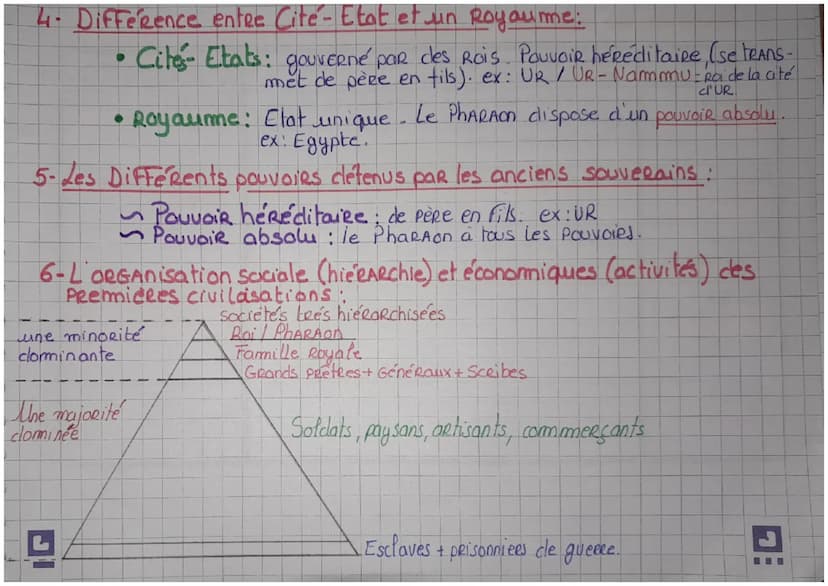 4. Différence entre Cité-Etat et un Royaume:
• Cité-Etats: gouverné par des Rois. Pouvoir héréditaire, (se trans-
met de père en fils). ex: UR / UR-Nammu = Roi de la cité
d'UR
• Royaume: Etat unique. Le Pharaon dispose d'un pouvoir absolu.
ex: Egypte.
5- Les Différents pouvoirs détenus par les anciens souverains:
~ Pouvoir héréditaire: de père en fils. ex: UR
~ Pouvoir absolu: le Pharaon a tous les pouvoirs.
6- L'organisation sociale (hiérarchie) et économiques (activités) des
premières civilisations:
Sociétés très hiérarchisées
une minorité
dominante
Roi / Pharaon
Famille Royale
Grands prêtres + Généraux + Scribes
Une majorité
dominée
Soldats, paysans, artisants, commerçants
Esclaves + prisonniers de guerre.